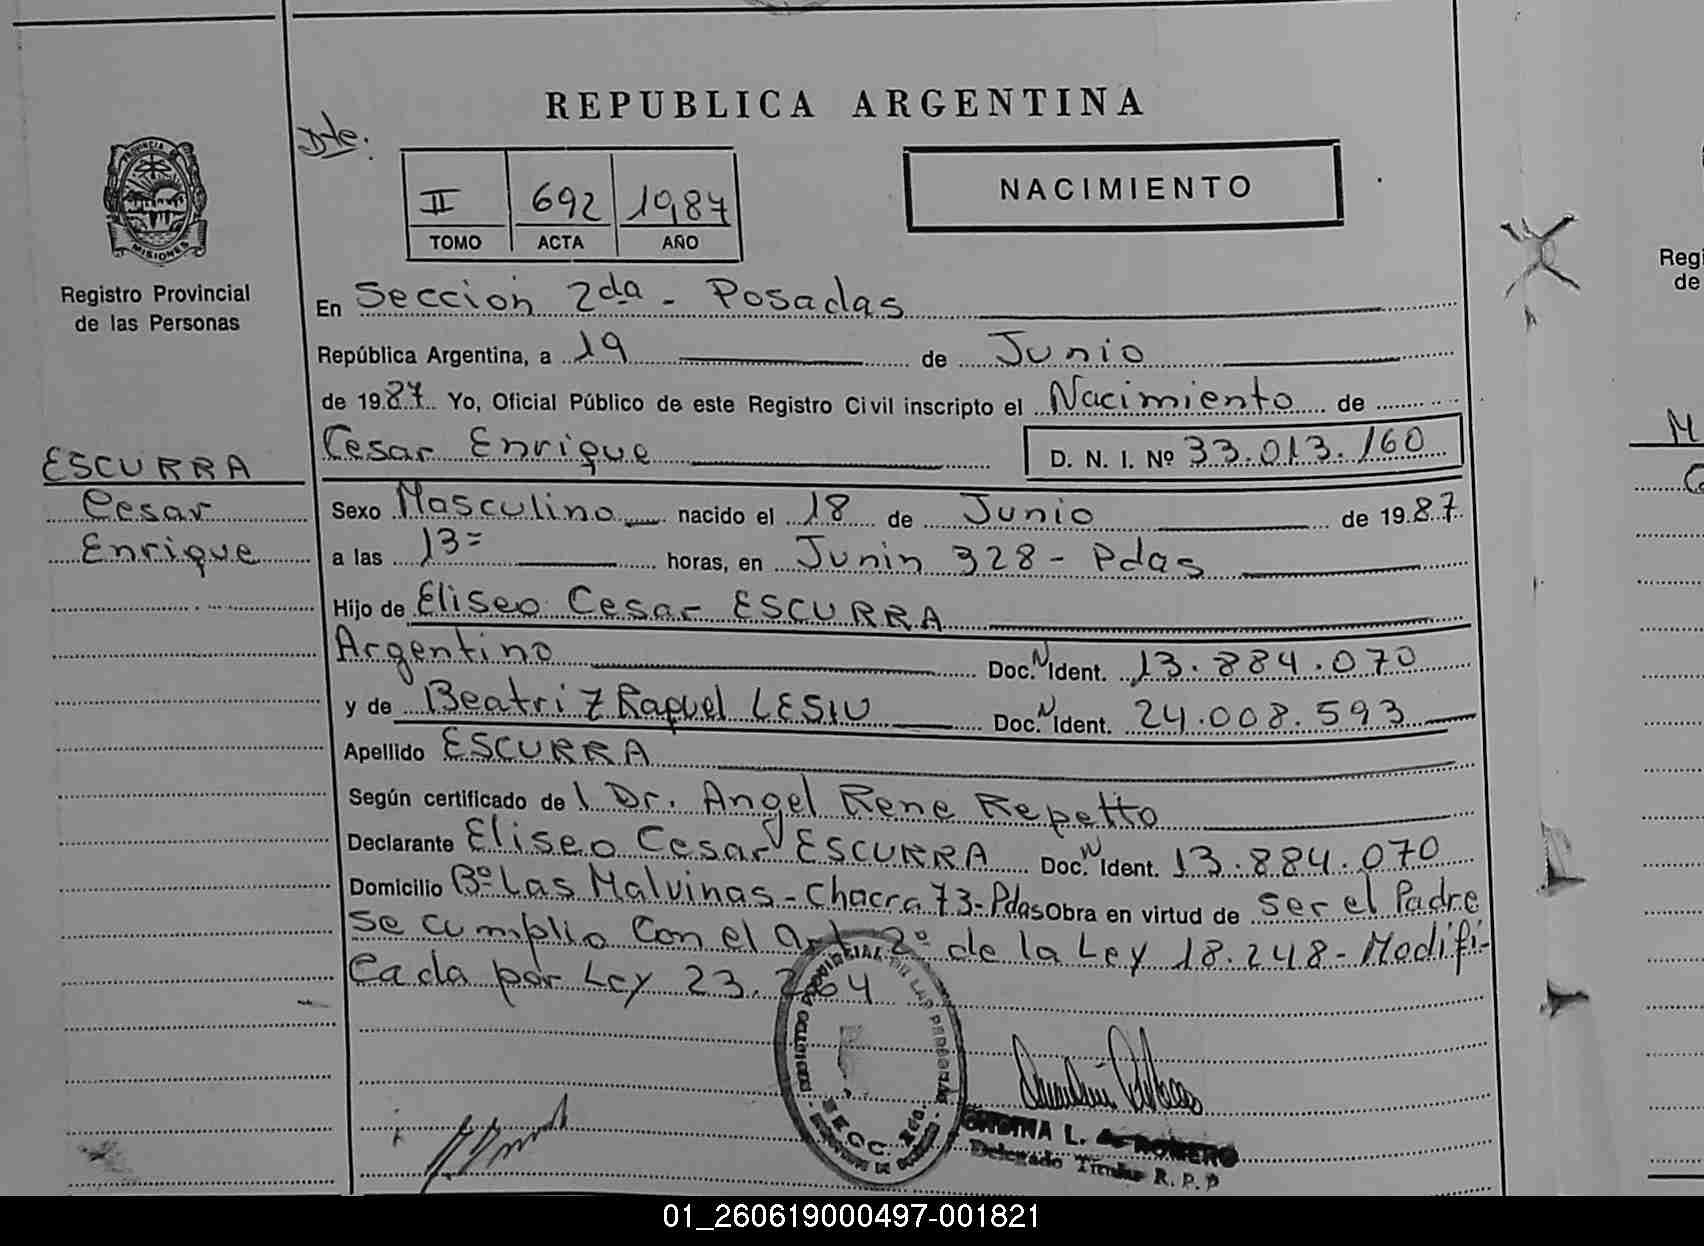 REPUBLICA ARGENTINA
Dte.
II 692 1987
TOMO ACTA AÑO
NACIMIENTO
PROVINCIA DE
MISIONES
Registro Provincial
de las Personas
ESCURRA
Cesar
Enrique
En Seccion 2da - Posadas
República Argentina, a 19 de Junio
de 1987 Yo, Oficial Público de este Registro Civil inscripto el Nacimiento de
Cesar Enrique D. N. I. Nº 33.013.160
Sexo Masculino nacido el 18 de Junio de 1987
a las 13= horas, en Junin 328 - Pdas
Hijo de Eliseo Cesar ESCURRA
Argentino Doc. N Ident. 13.884.070
y de Beatriz Raquel LESIU Doc. N Ident. 24.008.593
Apellido ESCURRA
Según certificado de l Dr. Angel Rene Repetto
Declarante Eliseo Cesar ESCURRA Doc. N Ident. 13.884.070
Domicilio Bº Las Malvinas - Chacra 73 - Pdas Obra en virtud de ser el Padre
Se cumplio Con el art. 2º de la Ley 18.248 - Modifi-
cada por Ley 23.264
SECC. 2da.
ONDINA L. A. ROMERO
Delegado Titular R. P. P
Regi
de
M
C
01_260619000497-001821